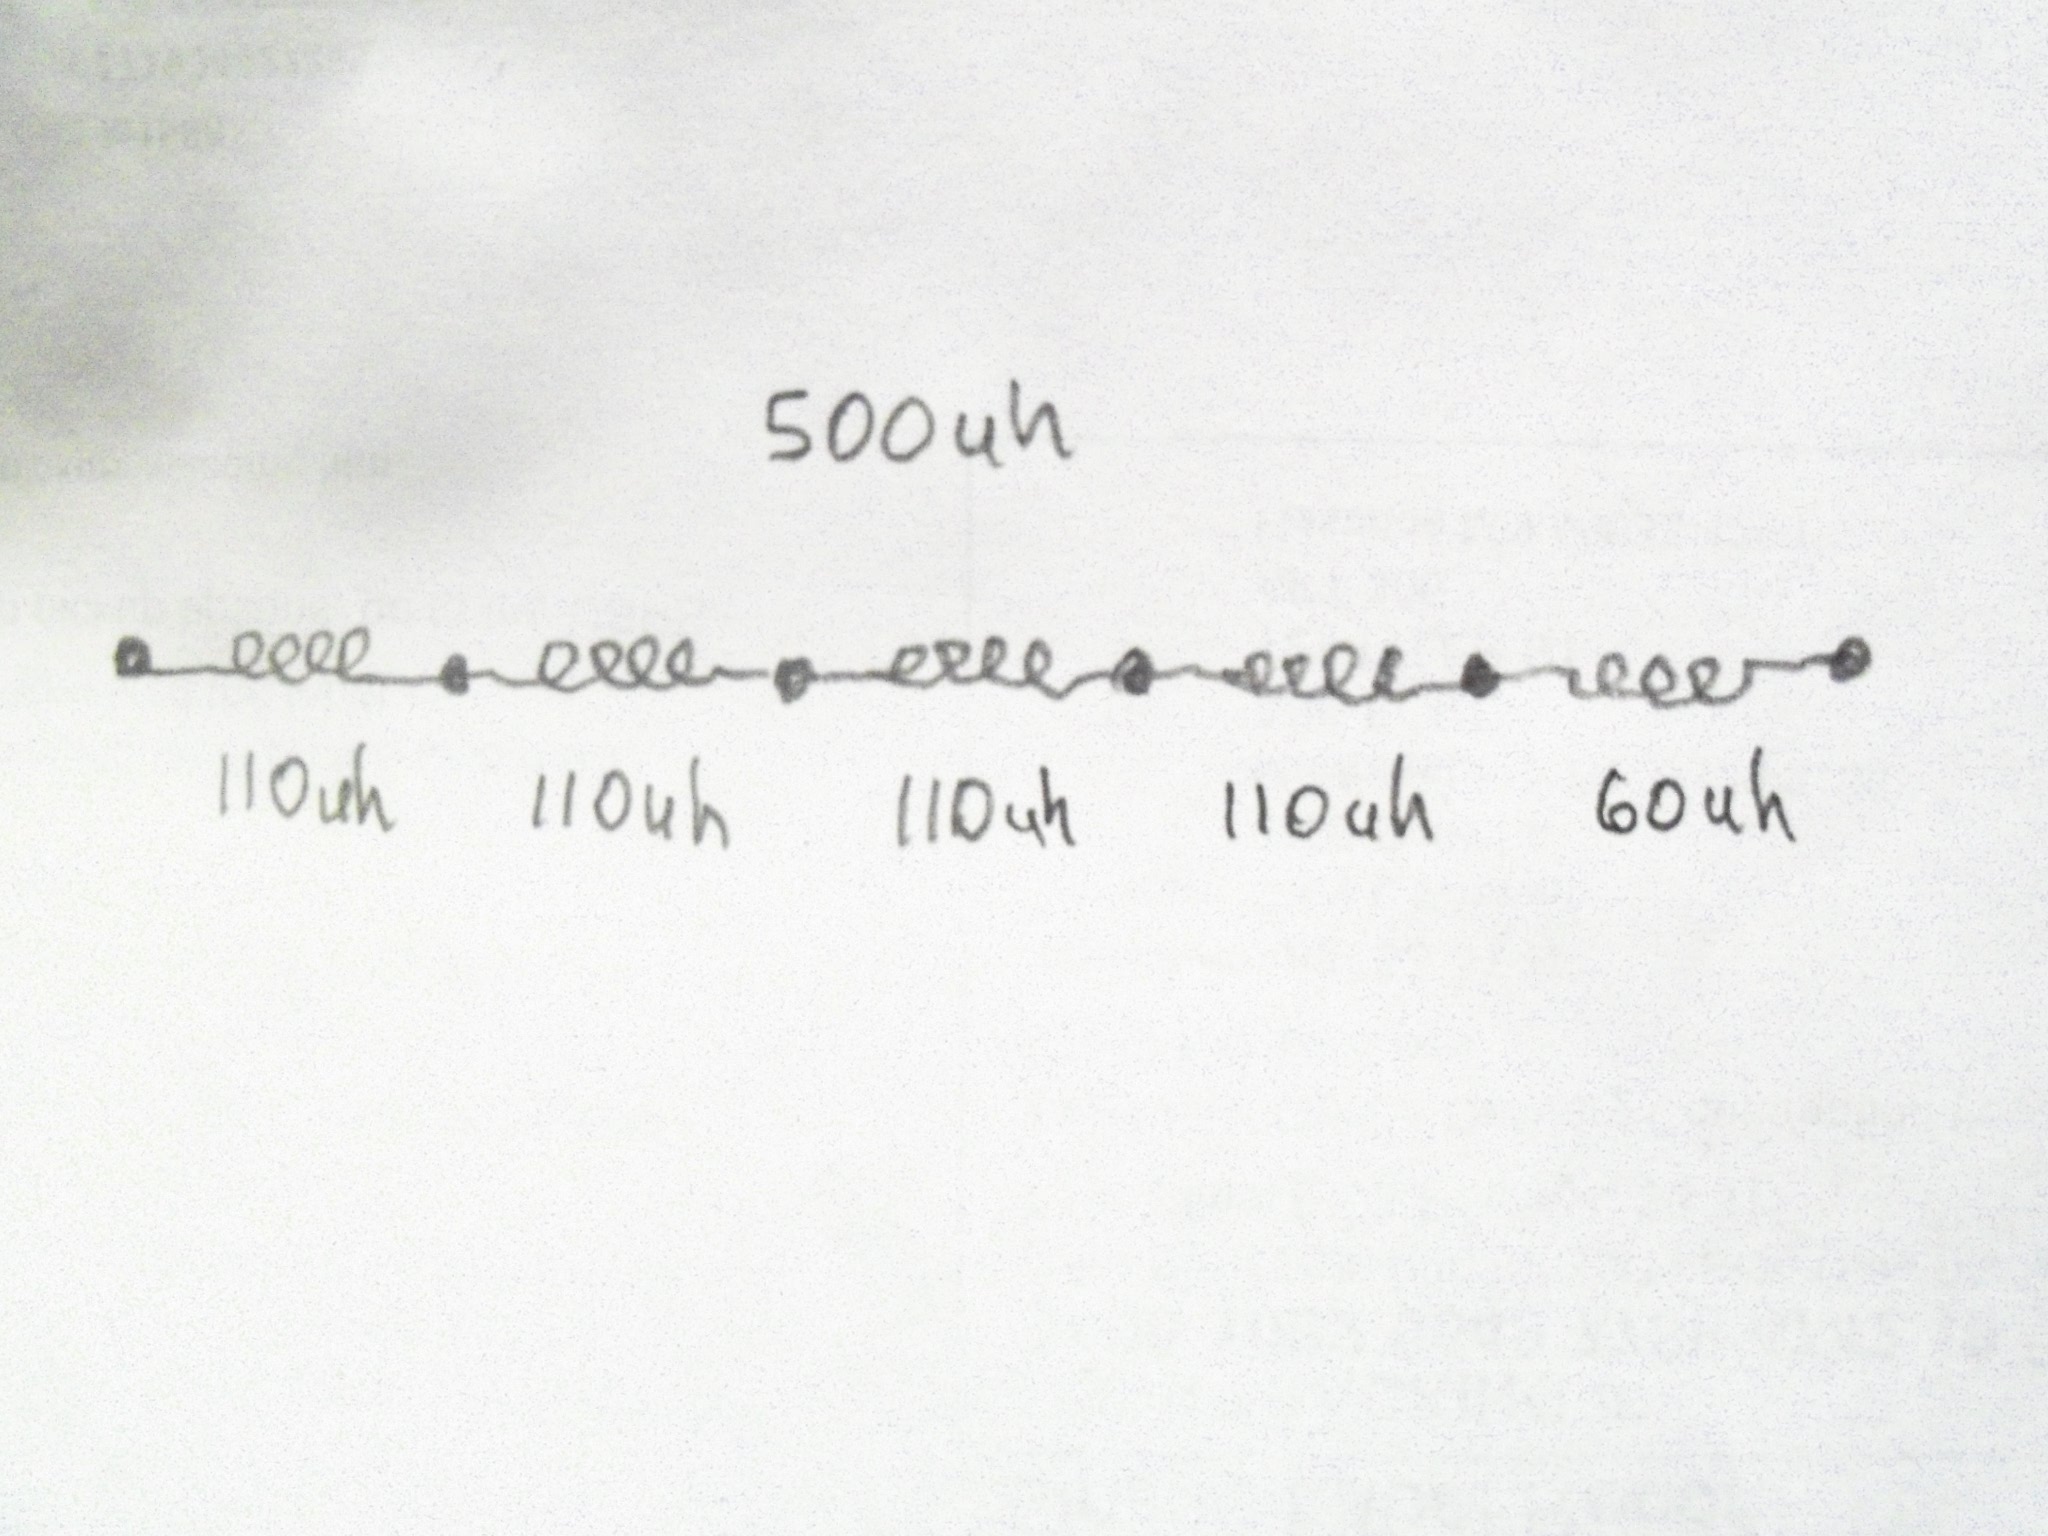 500uh
110uh 110uh 110uh 110uh 60uh